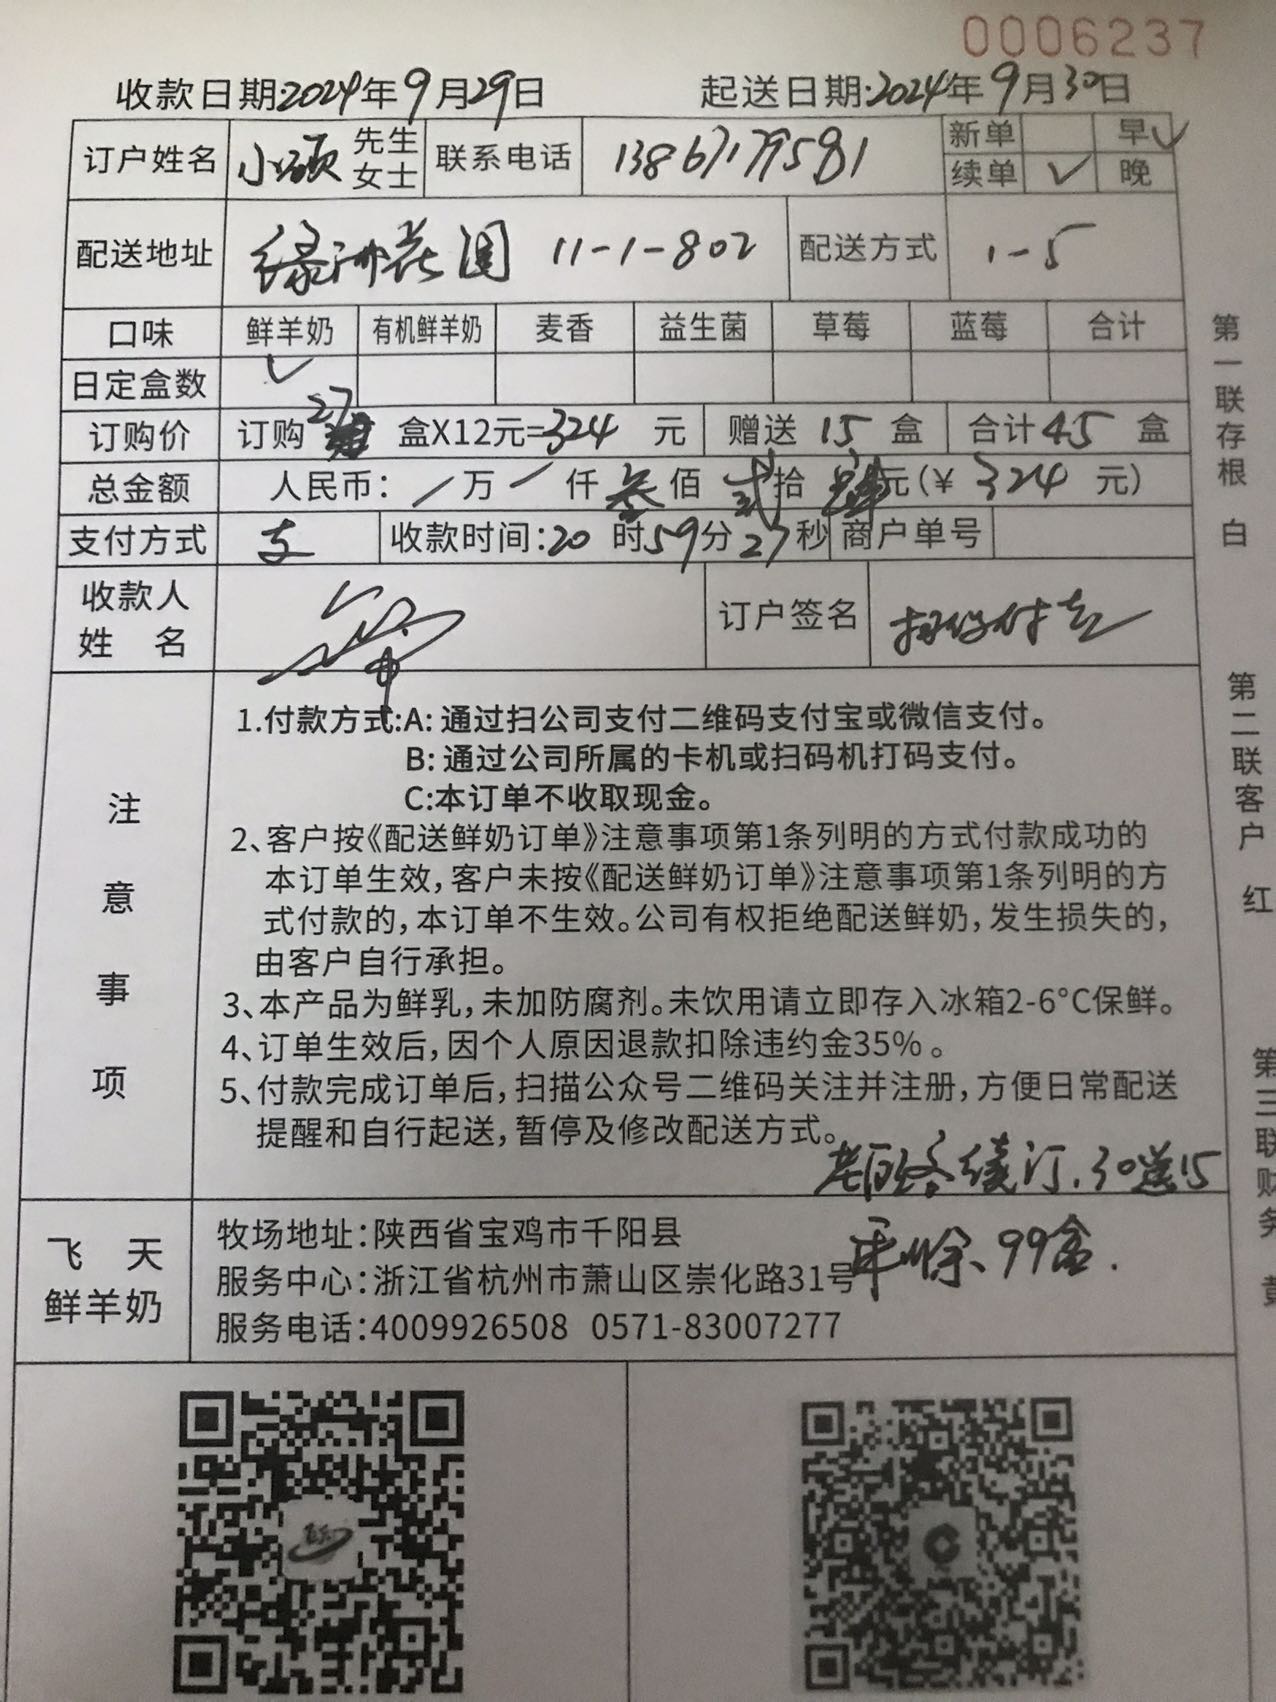 0006237
收款日期:2024年9月29日 起送日期:2024年9月30日
订户姓名 小硕 先生 女士 联系电话 13867179581 新单 早✓
续单 ✓ 晚
配送地址 绿洲花园 11-1-802 配送方式 1-5
口味 鲜羊奶 有机鲜羊奶 麦香 益生菌 草莓 蓝莓 合计
日定盒数 ✓
订购价 订购 27 盒X12元=324 元 赠送 15 盒 合计 45 盒
总金额 人民币： 万 仟 叁 佰 贰 拾 肆 元(￥ 324 元)
支付方式 支 收款时间:20 时 59 分 27 秒 商户单号
收款人
姓 名 订户签名 扫码付款
注意事项
1.付款方式:A: 通过扫公司支付二维码支付宝或微信支付。
B: 通过公司所属的卡机或扫码机打码支付。
C:本订单不收取现金。
2、客户按《配送鲜奶订单》注意事项第1条列明的方式付款成功的
本订单生效，客户未按《配送鲜奶订单》注意事项第1条列明的方
式付款的，本订单不生效。公司有权拒绝配送鲜奶，发生损失的，
由客户自行承担。
3、本产品为鲜乳，未加防腐剂。未饮用请立即存入冰箱2-6°C保鲜。
4、订单生效后，因个人原因退款扣除违约金35%。
5、付款完成订单后，扫描公众号二维码关注并注册，方便日常配送
提醒和自行起送，暂停及修改配送方式。
续订.30送15
飞 天
鲜羊奶
牧场地址：陕西省宝鸡市千阳县
服务中心：浙江省杭州市萧山区崇化路31号
99盒.
服务电话：4009926508 0571-83007277
第一联存根 白
第二联客户 红
第三联财务 黄